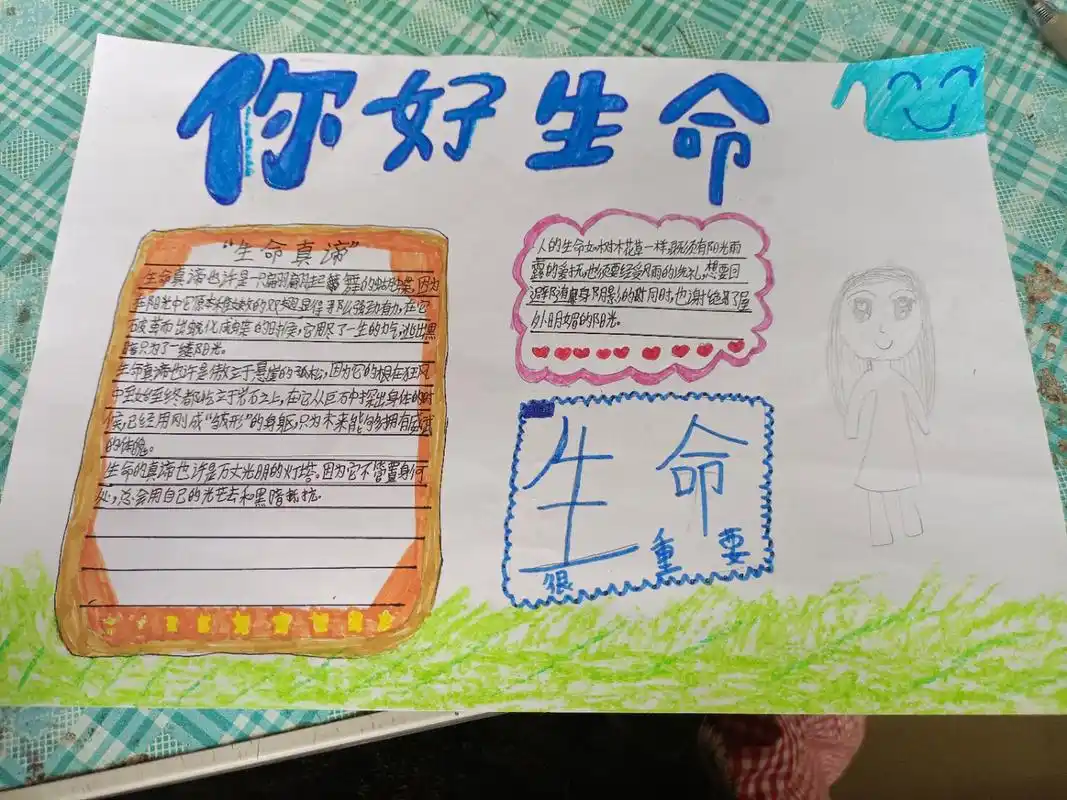 你好生命
“生命真谛”
生命真谛也许是一只翩翩起舞的蝴蝶,因为
在阳光中它原本秾缬的双翅显得那么强劲有力,在它
破茧而出蜕化成蝶的时候,它用尽了一生的力气,逃出黑
暗只为了一缕阳光。
生命真谛也许是傲立于悬崖的孤松,因为它的根在狂风
中至始至终都屹立于岩石之上,在它从巨石中探出身体的时
候,已经用刚成“雏形”的身躯,只为未来能够拥有
的体魄。
生命的真谛也许是万丈光明的灯塔。因为它不管置身何
处,总会用自己的光芒去和黑暗抵抗。
人的生命如树木花草一样,既须有阳光雨
露的爱抚,也须要经受风雨的洗礼,想要回
避那道身下阴影的时同时,也谢绝了屋
外明媚的阳光。
生命
很重要